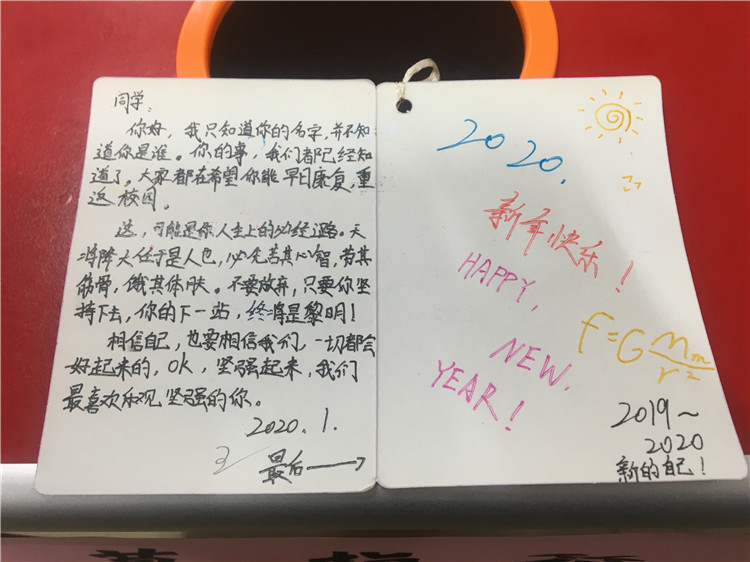 同学:
你好，我只知道你的名字，并不知
道你是谁。你的事，我们都已经知
道了。大家都在希望你能早日康复，重
返校园。
这，可能是你人生上的必经之路。天
将降大任于是人也，必先苦其心智，劳其
筋骨，饿其体肤。不要放弃，只要你坚
持下去，你的下一站，终将是黎明！
相信自己，也要相信我们，一切都会
好起来的，OK，坚强起来，我们
最喜欢乐观坚强的你。
2020.1.
最后→
2020.
新年快乐！
HAPPY,
NEW,
YEAR!
F=G Mm/r²
2019~
2020
新的自己！